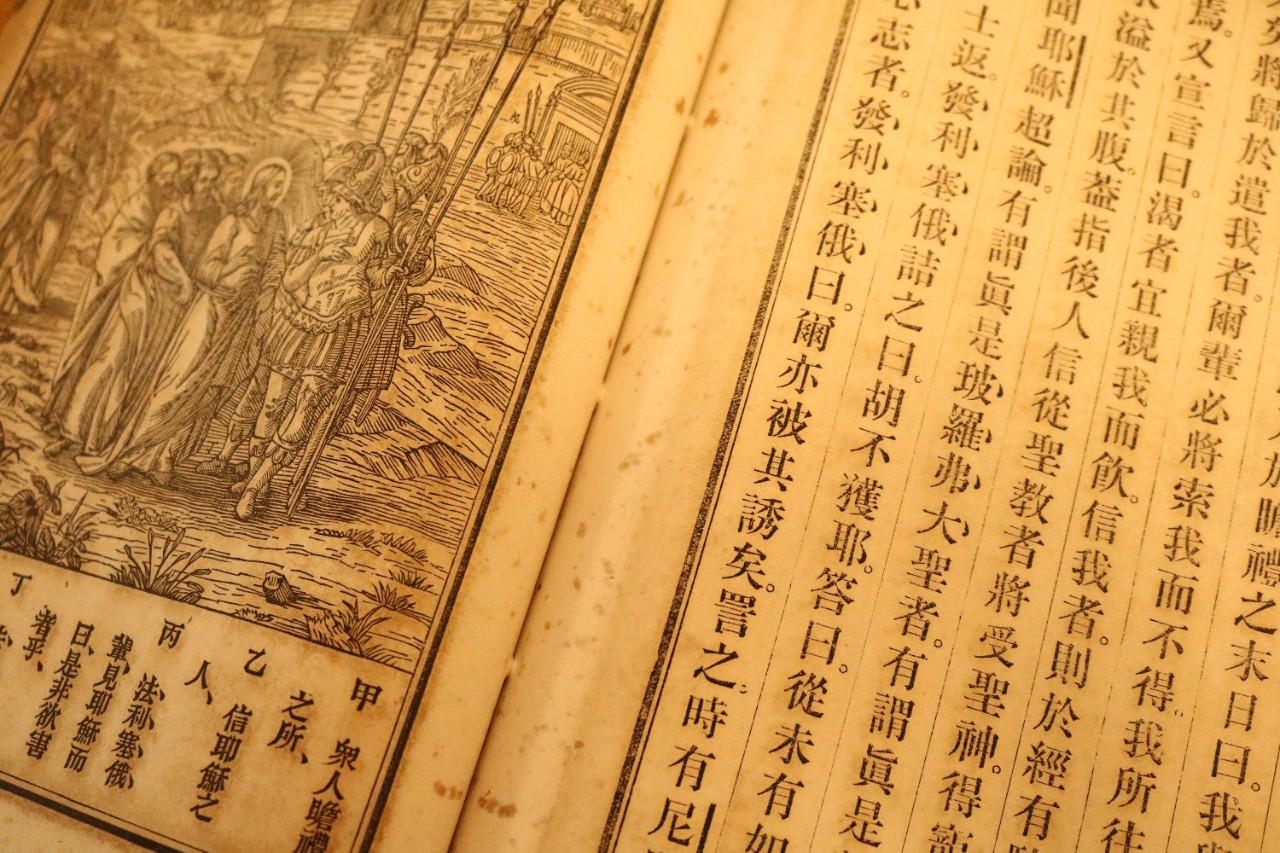 於瞻禮之末日曰。我
將歸於遣我者。爾輩必將索我而不得。我所往
焉。又宣言曰。渴者宜親我而飲。信我者。則於經有
溢於其腹。蓋指後人信從聖教者將受聖神。得寵
聞耶穌超論。有謂眞是玻羅弗大聖者。有謂眞是
士返。發利塞俄詰之曰。胡不獲耶。答曰。從未有如
心志者。發利塞俄曰。爾亦被其誘矣。詈之時有尼
甲 衆人瞻禮
之所、
乙 信耶穌之
人、
丙 法利塞俄、
輩、見耶穌而
曰、是非欲害
者乎、
丁